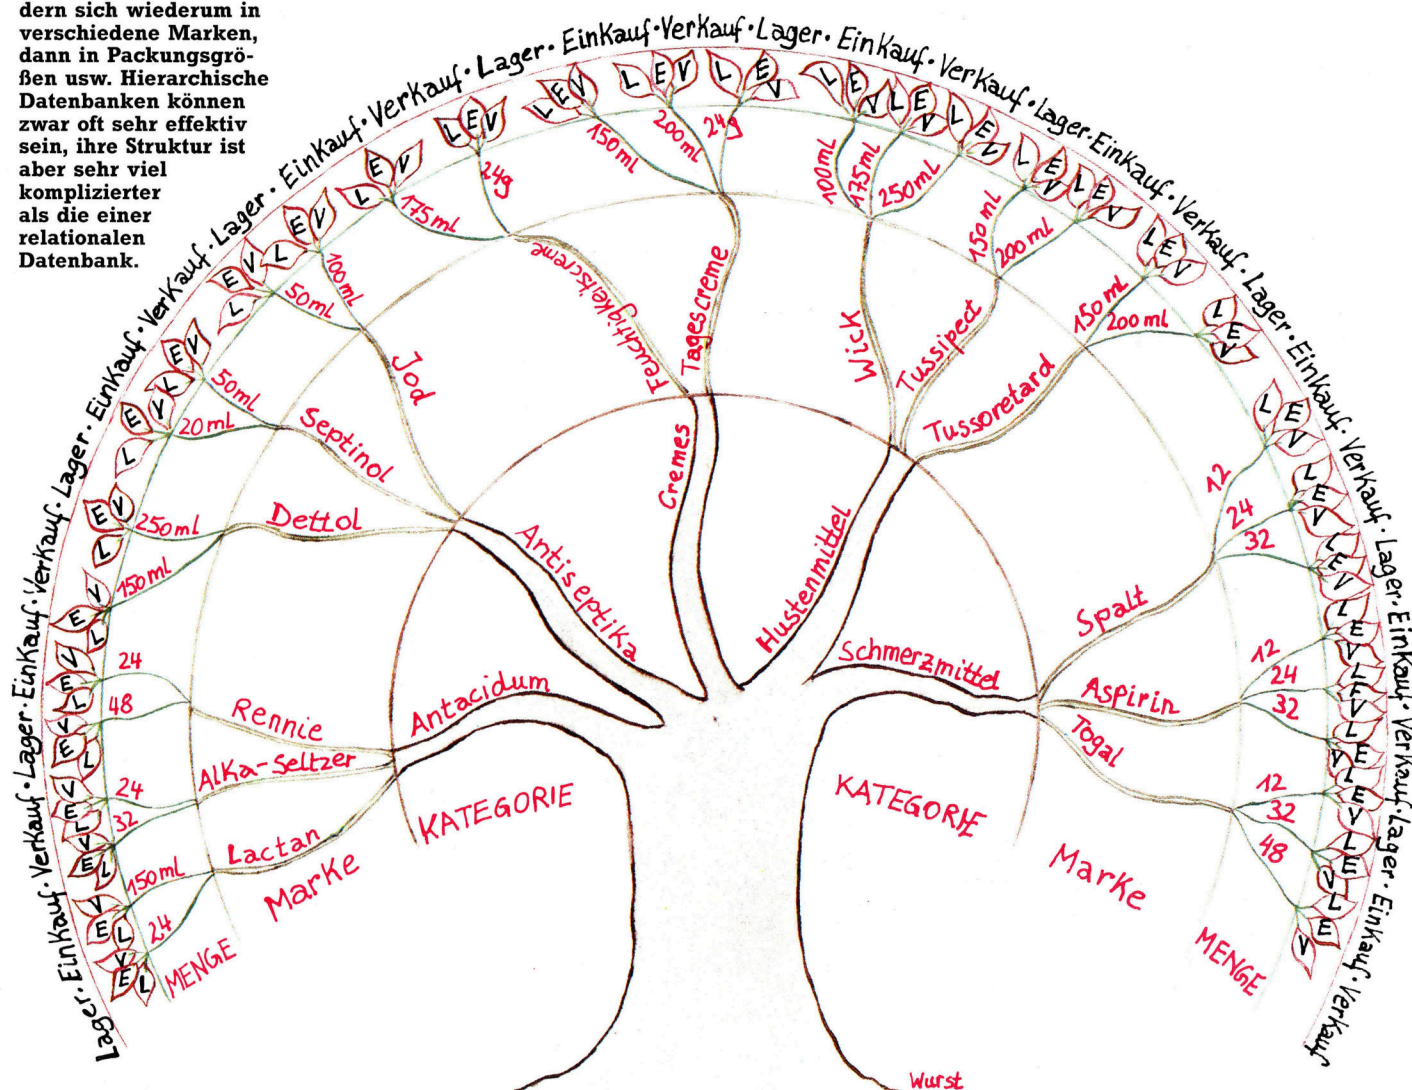 dern sich wiederum in
verschiedene Marken,
dann in Packungsgrö-
ßen usw. Hierarchische
Datenbanken können
zwar oft sehr effektiv
sein, ihre Struktur ist
aber sehr viel
komplizierter
als die einer
relationalen
Datenbank.
Lager · Einkauf · Verkauf · Lager · Einkauf · Verkauf · Lager · Einkauf · Verkauf · Lager · Einkauf · Verkauf · Lager · Einkauf · Verkauf · Lager · Einkauf · Verkauf · Lager · Einkauf · Verkauf · Lager · Einkauf · Verkauf · Lager · Einkauf · Verkauf · Lager · Einkauf · Verkauf · Lager · Einkauf · Verkauf · Lager · Einkauf · Verkauf · Lager · Einkauf · Verkauf
Antacidum
Lactan
24
150 ml
Alka-Seltzer
32
24
Rennie
48
24
Antiseptika
Dettol
150 ml
250 ml
Septinol
20 ml
50 ml
Jod
50 ml
100 ml
Cremes
Feuchtigkeitscreme
175 ml
24g
Tagescreme
150 ml
200 ml
24g
Hustenmittel
Wick
100 ml
175 ml
250 ml
Tussipect
150 ml
200 ml
Tussoretard
150 ml
200 ml
Schmerzmittel
Spalt
12
24
32
Aspirin
12
24
32
Togal
12
32
48
KATEGORIE
Marke
MENGE
KATEGORIE
Marke
MENGE
Wurst